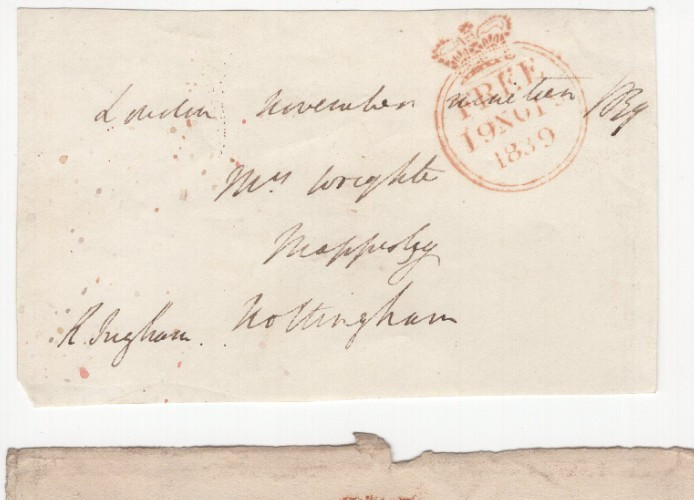 London November nineteen 1839
FREE
19 NO 19
1839
Mrs Wright
Mapperley
Nottingham
R. Ingham.